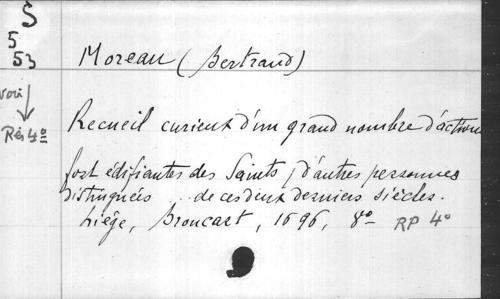 S
5
53
Moreau (Bertrand)
voir
Rés 4º
Recueil curieux d'un grand nombre d'actions
fort édifiantes des Saints, d'autres personnes
distinguées .. de ces deux derniers siècles.
Liége, Broncart, 1696, 8º RP 4º